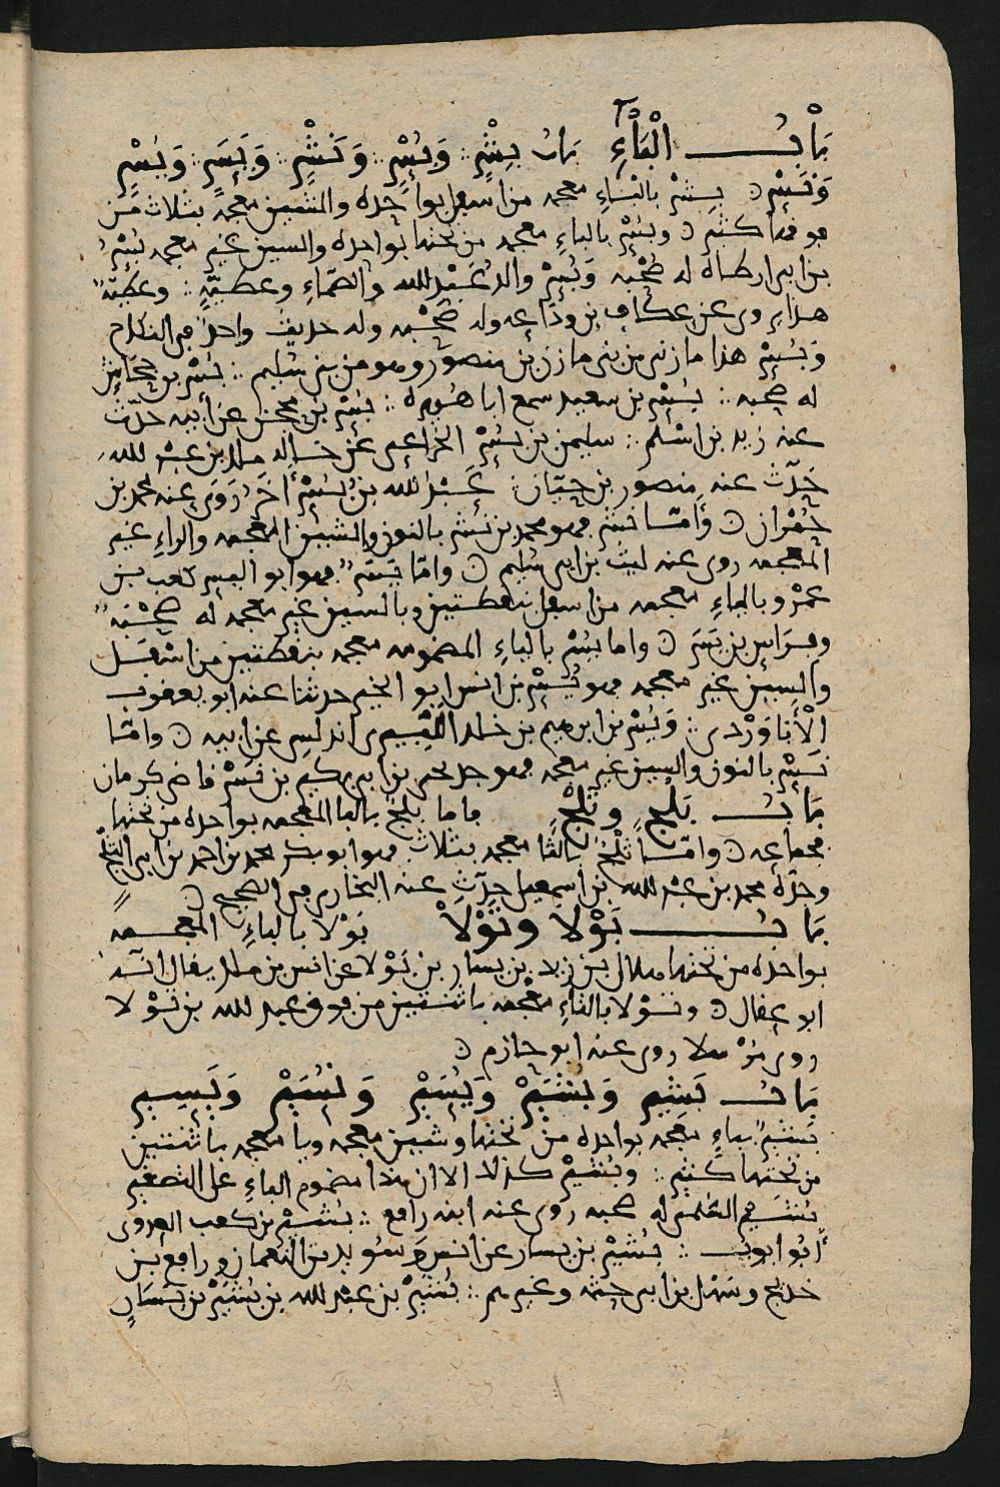 بَابُ الْبَاءِ بَابُ بِشْرٍ وَبُسْرٍ وَنَشْرٍ وَيَسَرٍ وَيُسْرٍ
وَنَسْرٍ بِشْرٌ بالباءِ معجمه من اسفل بواحده والشين معجمة بثلاث من
فوقها كثير وبُسْرٌ بالباءِ معجمه من تحتها بواحده والسين غير معجمه بُسْرُ
بن ابي ارطاة له صُحْبه وَبُسْرٌ والد عَبْد الله والصّمّاءِ وعطيّةٍ وعطيّة
هذا روى عن عكاف بن وَدَاعه وله صُحْبه وله حديث واحد في النكاح
وَبُسْرٌ هذا مازني من بني مازن بن منصور وهو من بني سُليم بُسْرُ بن جحاش
له صحبه بُسْر بن سعيد سمع ابا هُريره بُسْرُ بن محجن عن أبيه حدّث
عنه زيد بن اسْلم سليمن بن بُسْرٌ الخزاعي عن خاله ملك بن عبد الله
حَدّث عنه منصور بن حيّان عَبْد الله بن بُسْر أخَر رَوَى عنه محمد بن
حُمْران وَأمّا نشر فهو محمد بن نَشْر بالنون والشين المعجمه والراءِ غير
المعجمه روى عنه ليث بن ابي سُليم وامّا يَسَر فهو ابو اليسر كعب بن
عَمْرو بالياءِ معجمه من اسفل بنقطتين وبالسين غير معجمه له صحْبَة
وفراس بن يَسَر واما يُسْرٌ بالياءِ المضمومه معجمه بنقطتين من اسْفل
والسين غير معجمه فهو يُسْر بن انس ابو الخير حدثنا عنه ابو يعقوب
الْأباوَرْدي وَيُسْر بن ابرهيم بن خلد اندلسي عن ابيه وامّا
نَسْر بالنون والسين غير معجمه فهو جد يحيى بن ابي بكير بن نَسْر قاضي كرمان
بَابُ بَلجٍ وثَلْجٍ فاما بلج بالبا المعجمه بواحده من تحتها
فجماعه وامّا ثَلْج بالثا معجمه بثلاث فهو ابو بكر محمد بن احمد بن ابي الثلْج
وجدّه محمد بن عبْد الله بن اسمعيل حدّث عنه البخاري في الصحيح
بَابُ بَوْلَا وتَوْلَا بَوْلَا بالباءِ المعجمه
بواحده من تحتها هلال بن زيد بن يسار بن بَوْلا عن انس بن ملك يقال انه
ابو عقال وتَوْلا بالتاءِ معجمه باثنتين من فوق عبد الله بن تَوْلا
روى مرْسلا روى عنه ابو حازم
بَابُ بَشِيرٍ وَبُشَيْرٍ وَيُسَيْرٍ وَنُسَيْرٍ وَيَسِيرٍ
بَشِيرٌ بباءٍ معجمه بواحده من تحتها وشين معجمه ويا معجمه باثنتين
من تحتها كثير وبُشَيْرٌ كذلك الا ان هذا مضموم الباءِ على التصغير
بُشَيْر السُّلمي له صحبه روى عنه ابنه رافع بُشَيْر بن كعب العدوي
أبُو ايوب بُشَيْرٌ بن يسار عن انس وَسُويد بن النعمان ورافع بن
خديج وسَهْل بن ابي حثمه وغيرهم بُشَيْر بن عبْد الله بن بُشَيْر بن يَسَارٍ